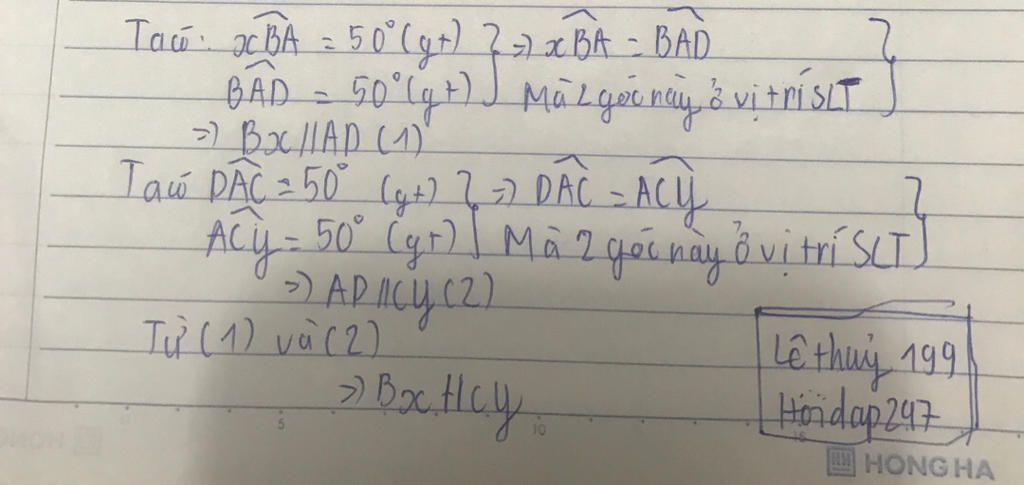 Ta có: xBA = 50° (gt) } => xBA = BAD }
BAD = 50° (gt) } Mà 2 góc này ở vị trí SLT
=> Bx // AD (1)
Ta có DAC = 50° (gt) } => DAC = ACy }
ACy = 50° (gt) } Mà 2 góc này ở vị trí SLT
=> AD // Cy (2)
Từ (1) và (2)
=> Bx // Cy
Lê thuỷ 199
Hoidap247
5 10 15
HONG HA